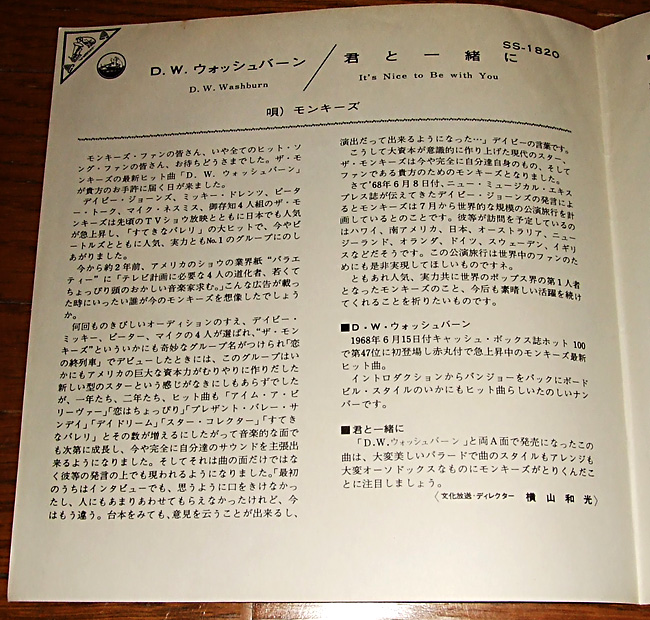 SS-1820
D.W. ウォッシュバーン / 君と一緒に
D. W. Washburn
It's Nice to Be with You
唄) モンキーズ
モンキーズ・ファンの皆さん、いや全てのヒット・ソ
ング・ファンの皆さん、お待ちどうさまでした。ザ・モ
ンキーズの最新ヒット曲「D. W. ウォッシュバーン」
が貴方のお手許に届く日が来ました。
デイビー・ジョーンズ、ミッキー・ドレンツ、ピータ
ー・トーク、マイク・ネスミス、御存知4人組のザ・モン
キーズは先頃のTVショウ放映とともに日本でも人気
が急上昇し、「すてきなバレリ」の大ヒットで、今やビ
ートルズとともに人気、実力ともNo.1のグループにのし
あがりました。
今から約2年前、アメリカのショウの業界紙“バラエ
ティー”に「テレビ計画に必要な4人の道化者、若くて
ちょっぴり頭のおかしい音楽家求む。」こんな広告が載っ
た時にいったい誰が今のモンキーズを想像したでしょう
か。
何回ものきびしいオーディションのすえ、デイビー・
ミッキー、ピーター、マイクの4人が選ばれ、“ザ・モン
キーズ”といういかにも奇妙なグループ名がつけられ「恋
の終列車」でデビューしたときには、このグループはい
かにもアメリカの巨大な資本力がむりやりに作りだした
新しい型のスターという感じがなきにしもあらずでした
が、一年たち、二年たち、ヒット曲も「アイム・ア・ビ
リーヴァー」「恋はちょっぴり」「プレザント・バレー・サン
デイ」「デイドリーム」「スター・コレクター」「すてき
なバレリ」とその数が増えるにしたがって音楽的な面で
も次第に成長し、今や完全に自分達のサウンドを主張出
来るようになりました。そしてそれは曲の面だけではな
く彼等の発言の上でも現われるようになりました。「最初
のうちはインタビューでも、思うように口をきけなかっ
たし、人にもあまりあわせてもらえなかったけれど、今
はもう違う。台本をみても、意見を云うことが出来るし、
演出だって出来るようになった…」デイビーの言葉です。
こうして大資本が意識的に作り上げた現代のスター、
ザ・モンキーズは今や完に自分達自身のもの、そして
ファンである貴方のためのモンキーズとなりました。
さて'68年6月8日付、ニュー・ミュージカル・エキス
プレス誌が伝えてきたデイビー・ジョーンズの発言によ
るとモンキーズは7月から世界的な規模の公演旅行を計
画しているとのことです。彼等が訪問を予定しているの
はハワイ、南アメリカ、日本、オーストラリア、ニュー
ジーランド、オランダ、ドイツ、スウェーデン、イギリ
スなどだそうです。この公演旅行は世界中のファンのた
めにも是非実現してほしいものですネ。
ともあれ人気、実力共に世界のポップス界の第1人者
となったモンキーズのこと、今后も素晴しい活躍を続け
てくれることを祈りたいものです。
■D・W・ウォッシュバーン
1968年6月15日付キャッシュ・ボックス誌ホット 100
で第47位に初登場し赤丸付で急上昇中のモンキーズ最新
ヒット曲。
イントロダクションからバンジョーをバックにボード
ビル・スタイルのいかにもヒット曲らしいたのしいナン
バーです。
■君と一緒に
「D.W.ウォッシュバーン」と両A面で発売になったこの
曲は、大変美しいバラードで曲のスタイルもアレンジも
大変オーソドックスなものにモンキーズがとりくんだこ
とに注目しましょう。
〈文化放送・ディレクター 横山和光〉